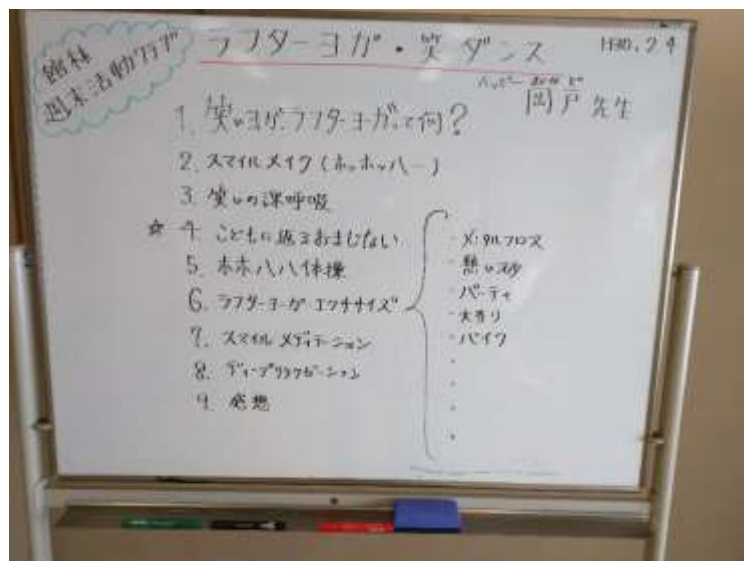 館林
週末活動クラブ
ラフターヨガ・笑ダンス
H30.2.4
ハッピー
岡戸先生
1. 笑いヨガ、ラフターヨガって何?
2. スマイルメイク(ホッホッハー)
3. 笑いの深呼吸
☆ 4. こどもに返るおまじない
5. ホホハハ体操
6. ラフターヨーガエクササイズ
7. スマイルメディテーション
8. ディープリラクゼーション
9. 感想
・メンタルフロス
・パーティ
・バイク